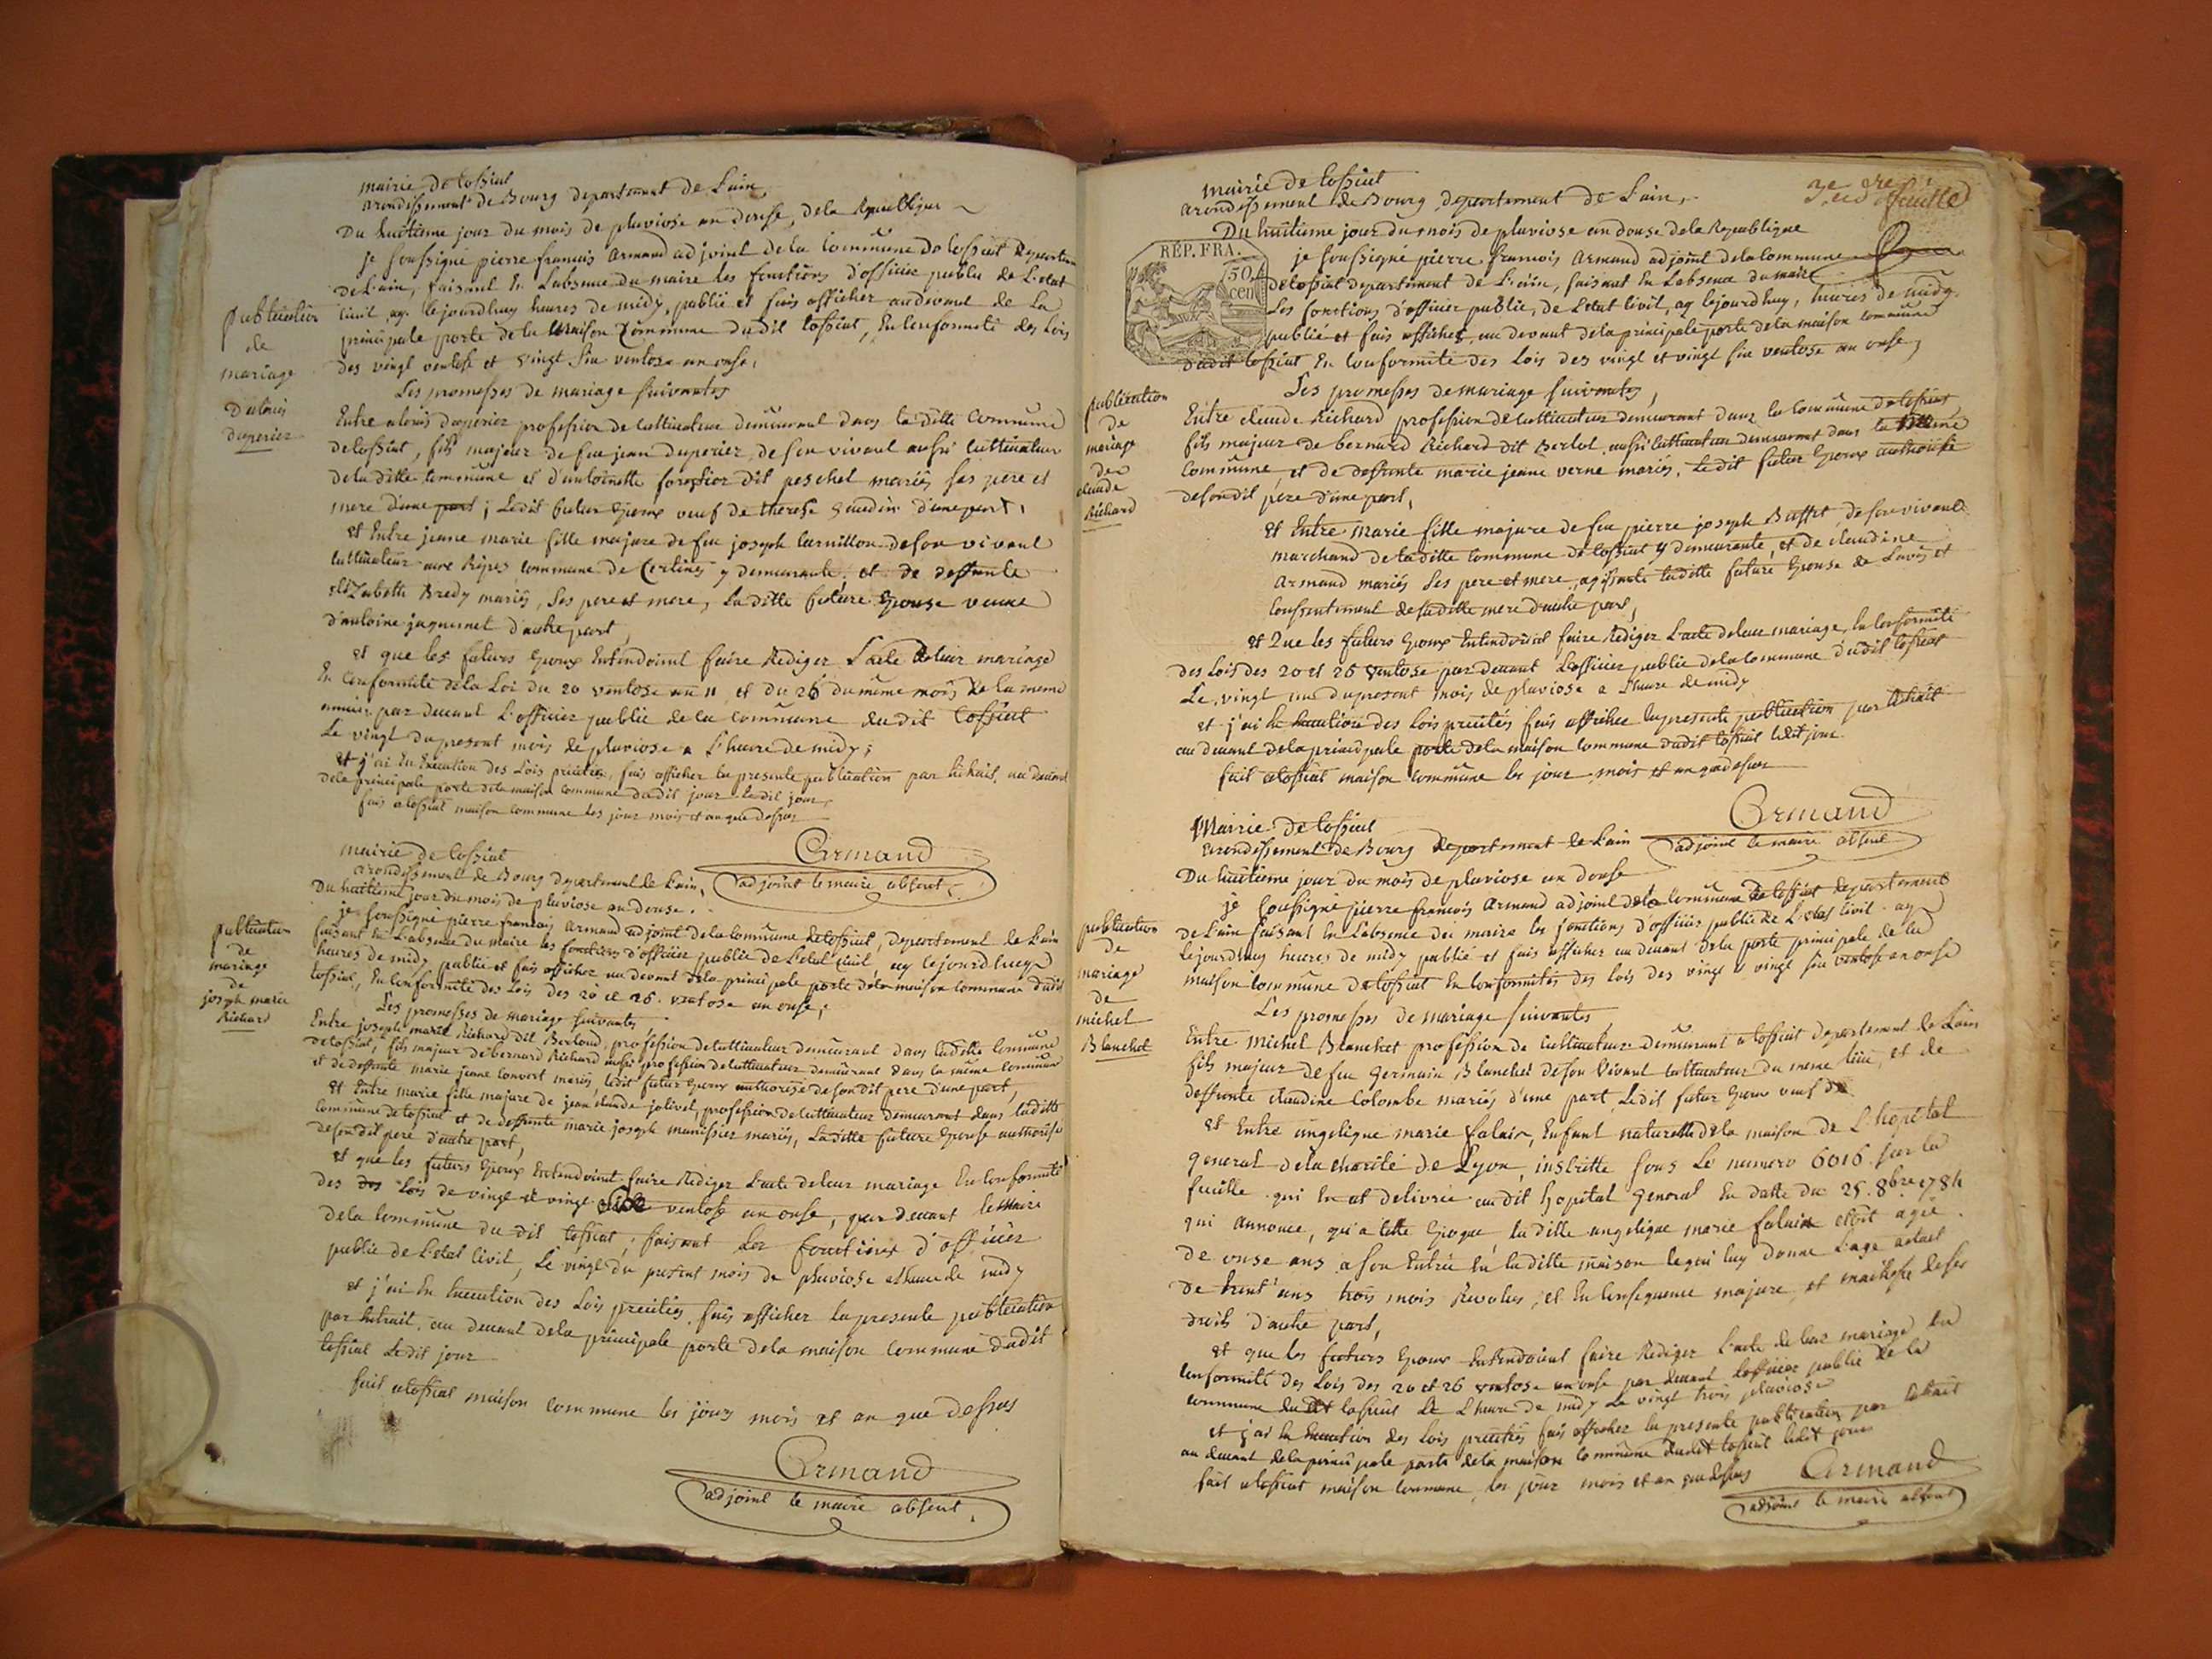 mairie de tossiat
arondissement de Bourg departement de Lain
Du huitieme jour du mois de pluviose an douse, de la Republique
je soussigné pierre francois Armand adjoint de la Commune de tossiat departem
de Lain, faisant En Labsence du maire les fonctions d'officier public de L'etat
civil, ay lejourdhuy heures de midy, publié et fais afficher audevant de La
principale porte de la Maison Commune dudit tossiat, En Conformité des Lois
des vingt ventose et vingt six ventose an onse,
publication
de
mariage
Dalouis
duperiez
Les promesses de mariage suivantes
Entre alouis duperiez profession de Cultivateur demeurant dans la ditte Commune
de tossiat, fils majeur de feu jean duperiez, de son vivant aussi Cultivateur
de la ditte Commune et d'antoinette forestier dit peschet mariés ses pere et
mere d'une part; Ledit futur Epoux veuf de therese gaudin d'une part,
et Entre jeanne marie fille majure de feu joseph Curnillon de son vivant
Cultivateur aux Ripes Commune de Certines y demeurante, et de deffunte
Elizabette Bredy mariés, Ses pere et mere, La ditte future Epouse veuve
d'antoine jaquemet d'autre part,
et que les futurs Epoux Entendoient faire Rediger L'acte de leur mariage
En Conformité de la Loi du 20 ventose an 11 et du 26 du même mois de la meme
année par devant L'officier public de la Commune dudit tossiat
Le vingt du present mois de pluviose a L'heure de midy;
et j'ai En Execution des Lois precitées, fais afficher la presente publication par Extrait, au devant
de la principale porte de la maison Commune dudit jour Ledit jour,
fais a tossiat maison Commune les jour mois et an que dessus
Armand
adjoint le maire absent
mairie de tossiat
arondissement de Bourg departement de Lain,
Du huitieme jour du mois de pluviose an douse.
je soussigné pierre francois Armand adjoint de la Commune de tossiat, departement de Lain
faisant En L'absence du maire les fonctions d'officier public de L'etat Civil, ay lejourdhuy
heures de midy publié et fais afficher au devant de la principale porte de la maison Commune dudit
tossiat, En Conformité des Lois des 20 et 26 ventose an onse,
publication
de
mariage
de
joseph marie
Richard
Les promesses de mariage suivantes
Entre joseph marie Richard dit Berloud, profession de Cultivateur demeurant dans laditte Commune
de tossiat, fils majeur de bernard Richard aussi profession de Cultivateur demeurant dans la même Commune
et de deffunte marie jeanne Convert mariés, ledit futur Epoux authorisé de son dit pere d'une part,
et Entre marie fille majure de jean claude jolivet, profession de Cultivateur demeurant dans laditte
Commune de tossiat et de deffunte marie joseph manissier mariés, Laditte future Epouse authorisé
de son dit pere d'autre part,
et que les futurs Epoux Entendoient faire Rediger L'acte de leur mariage En Conformité
des Lois de vingt et vingt six ventose an onse, par devant le maire
de la Commune du dit tossiat, faisant les fonctions d'officier
public de L'etat civil, Le vingt du present mois de pluviose a L'heure de midy
et j'ai En Execution des Lois precitées, fais afficher la presente publication
par Extrait, au devant de la principale porte de la maison Commune dudit
tossiat Ledit jour
fais a tossiat maison Commune les jours mois et an que dessus
Armand
adjoint le maire absent
mairie de tossiat
3e feuille
arondissement de Bourg departement de Lain,
Du huitieme jour du mois de pluviose an douse de la Republique
RÉP. FRA.
50 cen
je soussigné pierre francois Armand adjoint de la Commune
de tossiat departement de L'ain, faisant En Labsence du maire
Les fonctions d'officier public, de L'etat Civil, ay lejourdhuy, heures de midy
publié et fais afficher, au devant de la principale porte de la maison Commune
dudit tossiat En Conformité des Lois des vingt et vingt six ventose an onse,
publication
de
mariage
de
claude
Richard
Les promesses de mariage suivantes,
Entre claude Richard profession de Cultivateur demeurant dans la Commune de tossiat
fils majeur de bernard Richard dit Berlot, aussi Cultivateur demeurant dans la même
Commune, et de deffunte marie jeanne verne mariés, Le dit futur Epoux authorisé
de son dit pere d'une part,
et Entre marie fille majure de feu pierre joseph Buffet, de son vivant
marchand de laditte Commune de tossiat y demeurante, et de claudine
Armand mariés Ses pere et mere, agissante laditte future Epouse de Lavis et
Consentement de laditte mere d'autre part,
et Que les futurs Epoux Entendoient faire Rediger L'acte de leur mariage, En Conformité
des Lois des 20 et 26 ventose par devant Lofficier public de la Commune dudit tossiat
Le vingt un du present mois de pluviose a L'heure de midy
et j'ai En Execution des Lois precitées fais afficher la presente publication par Extrait
au devant de la principale porte de la maison Commune dudit tossiat ledit jour
fait a tossiat maison Commune les jour mois et an que dessus
Armand
adjoint le maire absent
Mairie de tossiat
arondissement de Bourg departement de Lain
Du huitieme jour du mois de pluviose an douse
je soussigné pierre francois Armand adjoint de la Commune de tossiat departement
de Lain faisant En Labsence du maire les fonctions d'officier public de L'etat Civil ay
lejourdhuy heures de midy publié et fais afficher au devant de la porte principale de la
maison Commune de tossiat En Conformités des lois des vingt et vingt six ventose an onse
publication
de
mariage
de
michel
Blanchet
Les promesses de mariage suivantes
Entre Michel Blanchet profession de Cultivateur demeurant a tossiat departement de Lain
fils majeur de feu Germain Blanchet de son Vivant Cultivateur du meme lieu, et de
deffunte claudine Colombe mariés d'une part Ledit futur Epoux veuf de
et Entre angelique marie falaix, Enfant naturelle de la maison de L'hopital
General de la charité de Lyon, inscritte sous Le numero 6016 sur la
feuille qui En est delivrée audit hopital General En datte du 25. 8bre 1784
qui annonce, qu'a cette Epoque, la ditte angelique marie falaix etoit agée
de onse ans a son Entrée En la ditte maison le qui luy donne L'age actuel
de trent'ans trois mois Revolus, et En Consequence majure, et maitresse de ses
droits d'autre part,
et que les futurs Epoux Entendoient faire Rediger L'acte de leur mariage En
Conformité des Lois des 20 et 26 ventose an onse par devant Lofficier public de la
Commune dudit tossiat a L'heure de midy Le vingt trois pluviose
et j'ai En Execution des Lois precitées fais afficher la presente publication par Extrait
au devant de la principale porte de la maison Commune dudit tossiat ledit jour
fait a tossiat maison Commune, les jour mois et an que dessus
Armand
adjoint le maire absent